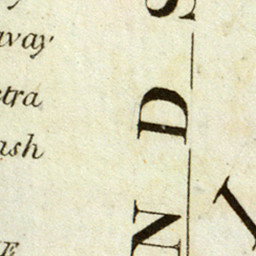 avay
tra
ash
E
NDS
I